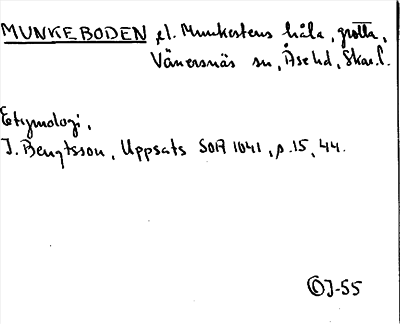 MUNKEBODEN, el. Munkestens håla, grotta,
Vänersnäs sn, Åse hd, Skar.l.
Etymologi,
J. Bengtsson, Uppsats SOA 1041, p.15, 44.
OJ-55